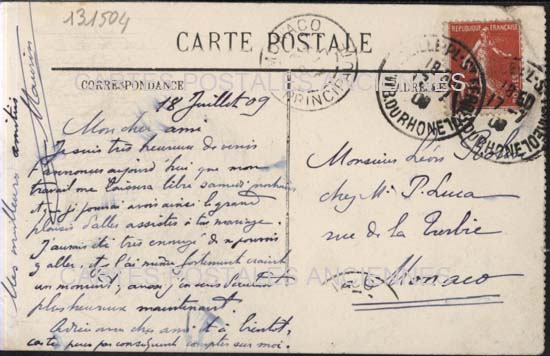 131504
CARTE POSTALE
CORRESPONDANCE
RÉPUBLIQUE FRANÇAISE
MONACO
PRINCIPAUTÉ
18 Juillet 09
Mon cher ami
Je suis très heureux de venir
t'annoncer aujourd'hui que mon
travail me laissera libre samedi prochain
et que je pourrai avoir ainsi le grand
plaisir d'aller assister à ton mariage.
J'aurais été très ennuyé de ne pouvoir
y aller, et l'ai même fortement craint
un moment; aussi, en suis
plus heureux maintenant.
Adieu mon cher ami et à bientôt,
car tu peux par conséquent compter sur moi.
Mes meilleurs amitiés
Monsieur Léon
chez Mr P. Luca
rue de la Turbie
Monaco
CARTES POSTALES ANCIENNES
CARTES POSTALES ANCIENNES